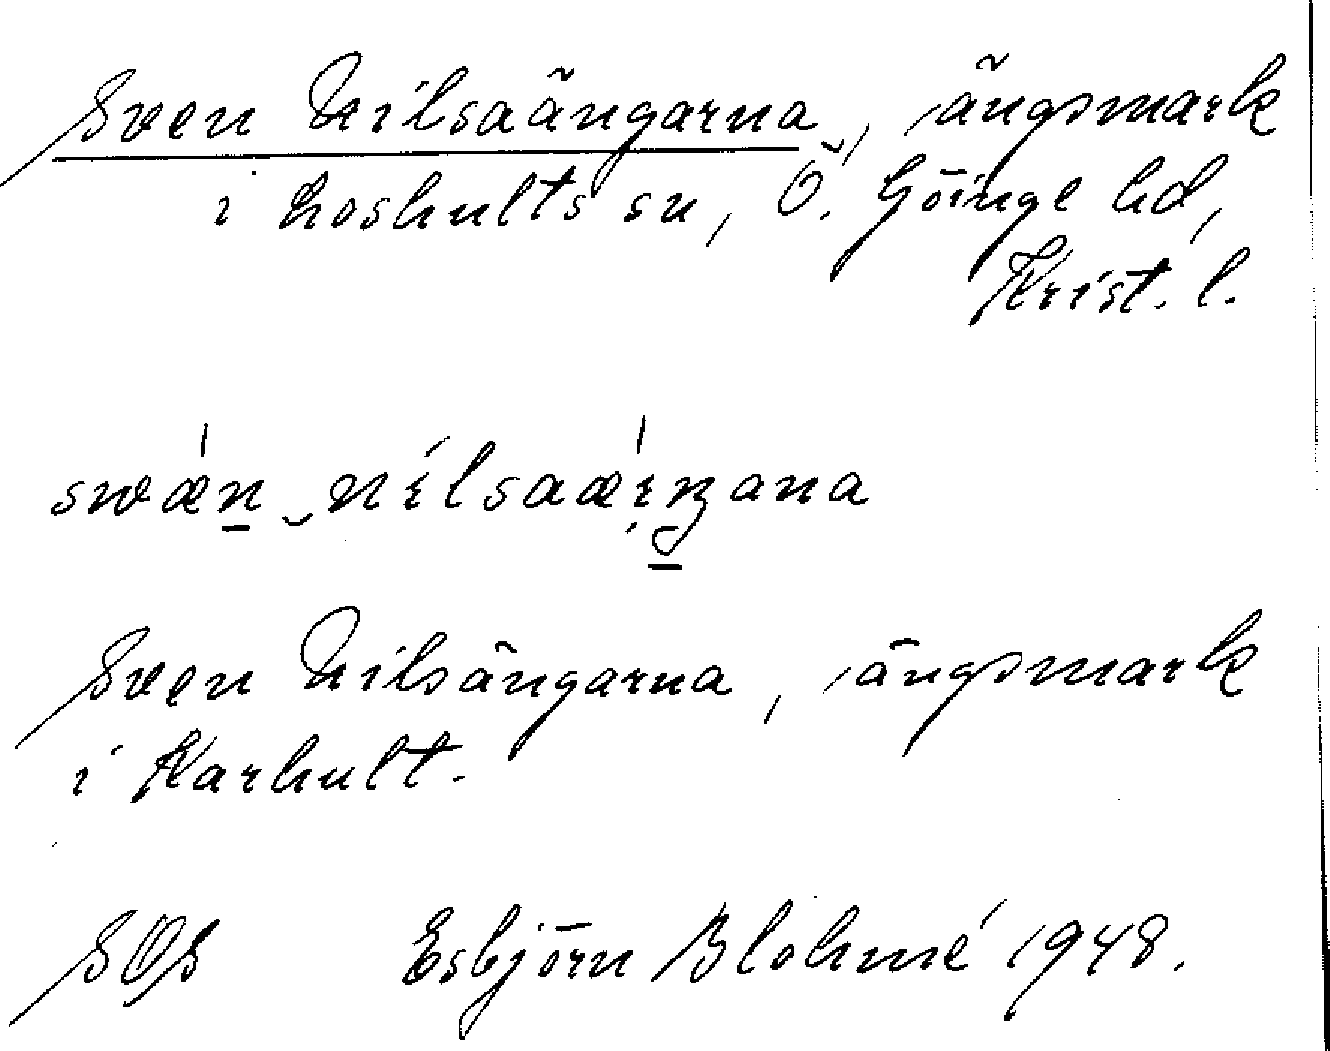 Sven Nilsaängarna, ängsmark
i Loshults sn, Ö. Göinge hd,
Krist. l.
Sven Nilsängarna, ängsmark
i Karhult.
SOS Esbjörn Blohmé 1948.